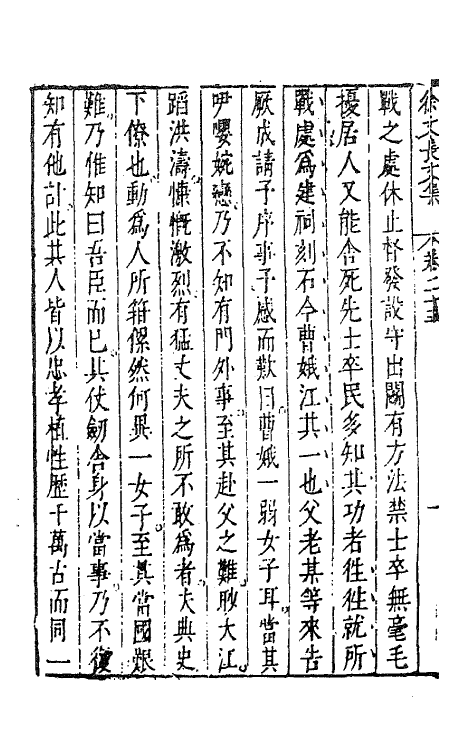 徐文長文集　卷二十三　一
戰之處休止督發設守出關有方法禁士卒無毫毛
擾居人又能舍死先士卒民多知其功者徃徃就所
戰處爲建祠刻石今曹娥江其一也父老某等來告
厥成請予序事予感而歎曰曹娥一弱女子耳當其
咿嚶婉戀乃不知有門外事至其赴父之難眇大江
蹈洪濤慷慨激烈有猛丈夫之所不敢爲者夫典史
下僚也動爲人所箝傫然何異一女子至其當國艱
難乃惟知曰吾臣而已其仗劒舍身以當事乃不復
知有他計此其人皆以忠孝植性歷千萬古而同一